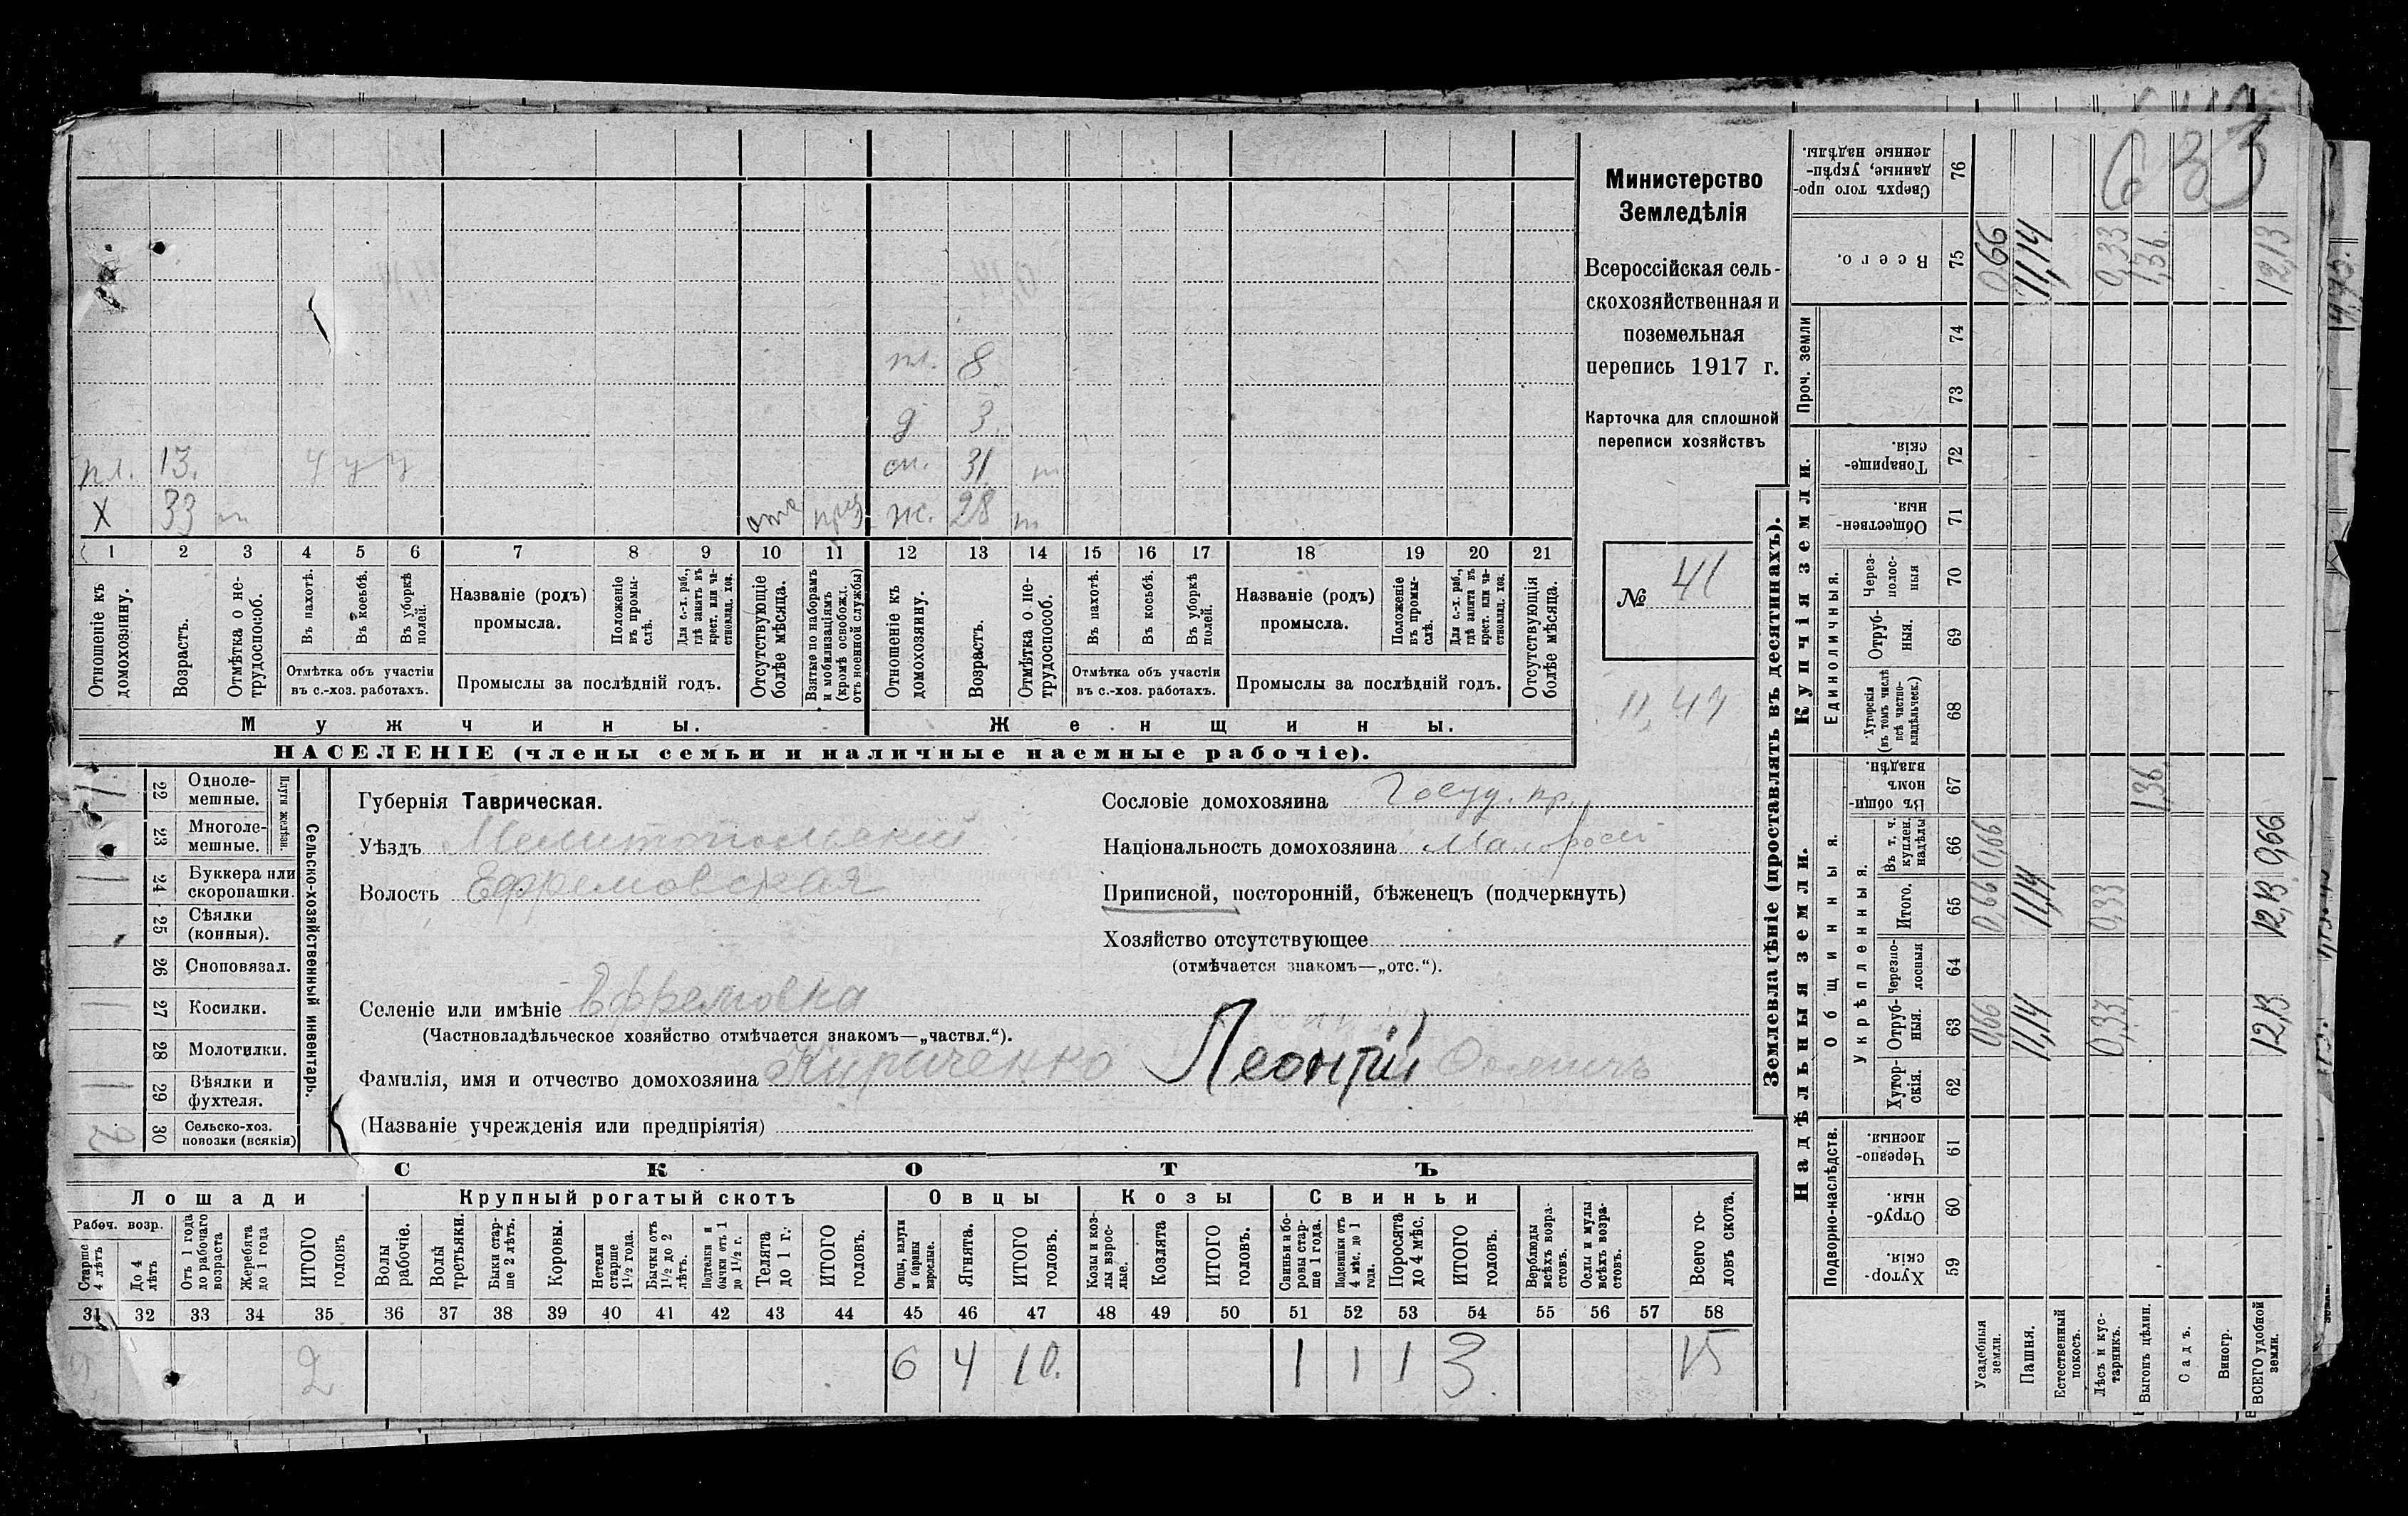 Министерство
Земледѣлія
Всероссійская сель-
скохозяйственная и
поземельная
перепись 1917 г.
Карточка для сплошной
переписи хозяйствъ
№ 41
11,47
633
пл. 8
д 3
пл. 13. ч у у сп. 31 т
X 33 т отс приз ж. 28 т
1 2 3 4 5 6 7 8 9 10 11 12 13 14 15 16 17 18 19 20 21
Отношеніе къ домохознину.
Возрастъ.
Отмѣтка о не-трудоспособ.
Въ пахотѣ.
Въ косьбѣ.
Въ уборкѣ полей.
Отмѣтка объ участіи
въ с.-хоз. работахъ.
Названіе (родъ)
промысла.
Положеніе въ промы-слѣ.
Для с.-х. раб., гдѣ занятъ въ крест. или ча-стновлад. хоз.
Промыслы за послѣдній годъ.
Отсутствующіе болѣе мѣсяца.
Взятые по наборамъ и мобилизаціямъ (кромѣ освобожд. отъ военной службы)
Отношеніе къ домохозяину.
Возрастъ.
Отмѣтка о не-трудоспособ.
Въ пахотѣ.
Въ косьбѣ.
Въ уборкѣ полей.
Отмѣтка объ участіи
въ с.-хоз. работахъ.
Названіе (родъ)
промысла.
Положеніе въ промы-слѣ.
Для с.-х. раб., гдѣ занята въ крест. или ча-стновлад. хоз.
Промыслы за послѣдній годъ.
Отсутствующія болѣе мѣсяца.
Мужчины. Женщины.
НАСЕЛЕНІЕ (члены семьи и наличные наемные рабочіе).
Сельско-хозяйственный инвентарь.
Плуги желѣзн.
1 22 Одноле-мешные.
23 Многоле-мешные.
1 24 Буккера или скоропашки.
25 Сѣялки (конныя).
26 Сноповязал.
1 27 Косилки.
28 Молотилки.
1 29 Вѣялки и фухтеля.
2 30 Сельско-хоз. повозки (всякія)
Губернія Таврическая.
Уѣздъ Мелитопольскій
Волость Ефремовская
Селеніе или имѣніе Ефремовка
(Частновладѣльческое хозяйство отмѣчается знакомъ—„частвл.“).
Фамилія, имя и отчество домохозяина Кириченко Леонтій
(Названіе учрежденія или предпріятія)
Сословіе домохозяина Госуд. кр.
Національность домохозяина Малоросс
Приписной, посторонній, бѣженецъ (подчеркнуть)
Хозяйство отсутствующее
(отмѣчается знакомъ—„отс.“).
СКОТЪ
Лошади Крупный рогатый скотъ Овцы Козы Свиньи
Рабоч. возр.
Старше 4 лѣтъ
До 4 лѣтъ
Отъ 1 года до рабочаго возраста
Жеребята до 1 года
ИТОГО головъ
Волы рабочіе.
Волы третьяки.
Быки стар-ше 2 лѣтъ.
Коровы.
Нетели старше 1½ года.
Бычки отъ 1½ до 2 лѣтъ.
Подтелки и бычки отъ 1 до 1½ г.
Телята до 1 г.
ИТОГО головъ.
Овцы, валухи и бараны взрослые.
Ягнята.
ИТОГО головъ.
Козы и коз-лы взрос-лые.
Козлята
ИТОГО головъ.
Свиньи и бо-ровы стар-ше 1 года.
Подсвинки отъ 4 мѣс. до 1 года.
Поросята до 4 мѣс.
ИТОГО головъ.
Верблюды всѣхъ возра-стовъ.
Ослы и мулы всѣхъ возра-стовъ.
Всего го-ловъ скота.
31 32 33 34 35 36 37 38 39 40 41 42 43 44 45 46 47 48 49 50 51 52 53 54 55 56 57 58
2 6 4 10. 1 1 1 3 15
Землевладѣніе (проставлять въ десятинахъ).
Надѣльныя земли. Купчія земли. Проч. земли
Подворно-наслѣдств. Общинныя. Укрѣпленныя. Единоличныя.
59 Хутор-скія.
60 Отруб-ныя.
61 Черезпо-лосныя.
62 Хутор-скія.
63 Отруб-ныя. 0,66 11,14 0,33 12,13
64 Черезпо-лосныя
65 Итого. 0,66 11,14 0,33 12,13
66 Въ т. ч. куплен. надѣлы 0,66 0,66
67 Въ общин-номъ владѣн. 1,36
68 Хуторскія (въ томъ числѣ всѣ частно-владѣльческ.)
69 Отруб-ныя.
70 Через-полос-ныя
71 Обществен-ныя
72 Товарище-скія.
73
74
75 Всего. 0,66 11,14 0,33 1,36. 12,13
76 Сверхъ того про-данные, укрѣп-ленные надѣлы.
Усадебныя земли.
Пашня.
Естественный покосъ.
Лѣсъ и кус-тарникъ.
Выгонъ цѣлин.
Садъ.
Виногр.
ВСЕГО удобной земли.